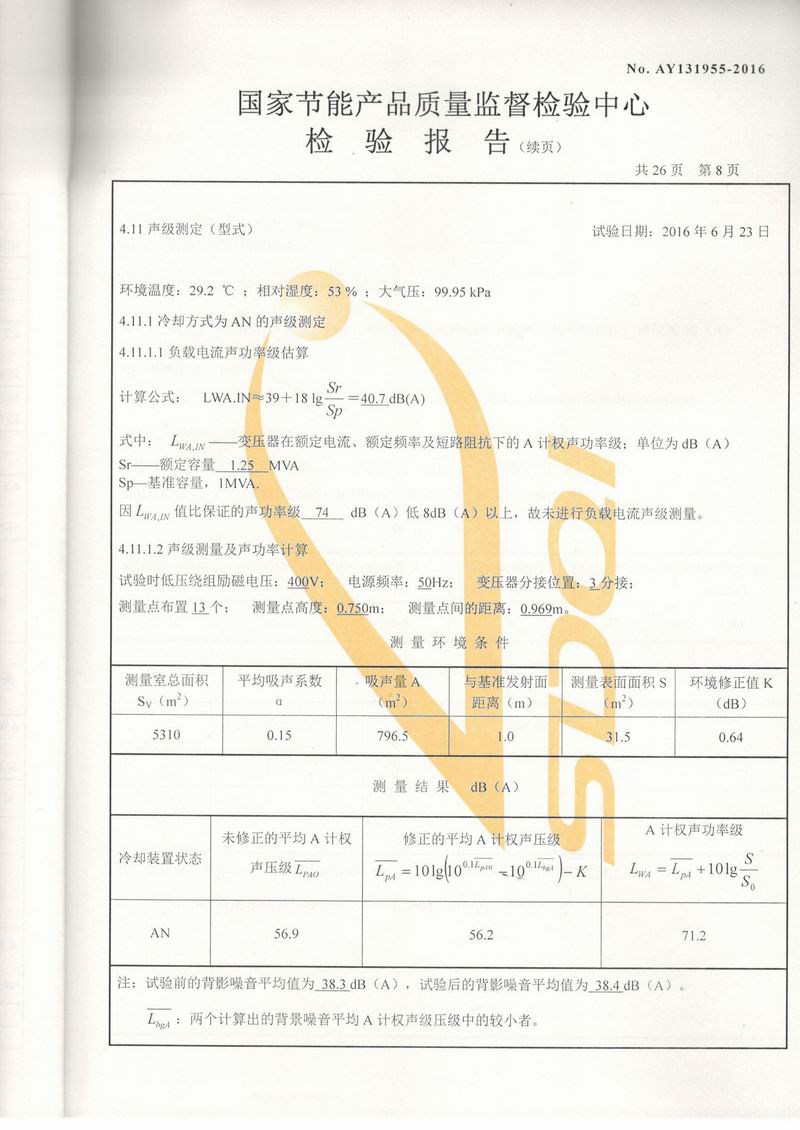 No. AY131955-2016
国家节能产品质量监督检验中心
检 验 报 告（续页）
共 26 页 第 8 页
4.11 声级测定（型式） 试验日期：2016 年 6 月 23 日
环境温度：29.2 ℃ ；相对湿度：53 % ；大气压：99.95 kPa
4.11.1 冷却方式为 AN 的声级测定
4.11.1.1 负载电流声功率级估算
计算公式： LWA.IN≈39＋18 lg Sr/Sp ＝40.7 dB(A)
式中： L_WA,IN ——变压器在额定电流、额定频率及短路阻抗下的 A 计权声功率级；单位为 dB（A）
Sr——额定容量 1.25 MVA
Sp—基准容量，1MVA.
因 L_WA,IN 值比保证的声功率级 74 dB（A）低 8dB（A）以上，故未进行负载电流声级测量。
4.11.1.2 声级测量及声功率计算
试验时低压绕组励磁电压：400V； 电源频率：50Hz； 变压器分接位置：3 分接；
测量点布置 13 个； 测量点高度：0.750m； 测量点间的距离：0.969m。
测 量 环 境 条 件
测量室总面积 平均吸声系数 吸声量 A 与基准发射面 测量表面面积 S 环境修正值 K
S_V（m²） α （m²） 距离（m） （m²） （dB）
5310 0.15 796.5 1.0 31.5 0.64
测 量 结 果 dB（A）
冷却装置状态
未修正的平均 A 计权
声压级 L_PAO
修正的平均 A 计权声压级
L_pA = 10lg(10^0.1L_pA0 - 10^0.1L_bgA) - K
A 计权声功率级
L_WA = L_pA + 10lg S/S₀
AN 56.9 56.2 71.2
注：试验前的背影噪音平均值为 38.3 dB（A），试验后的背影噪音平均值为 38.4 dB（A）。
L_bgA：两个计算出的背景噪音平均 A 计权声级压级中的较小者。
SDQI